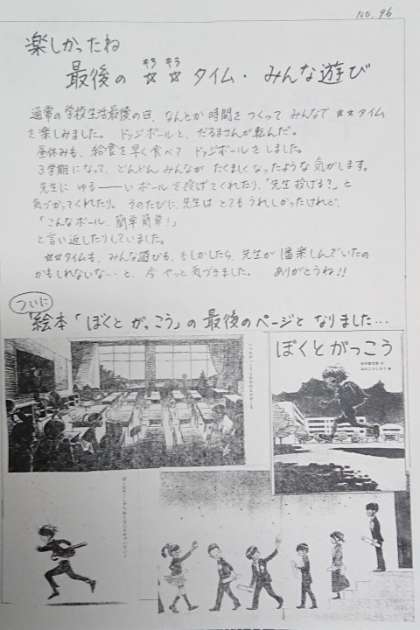 NO. 96
楽しかったね
最後の ☆☆タイム・みんな遊び
キラ キラ
通常の学校生活最後の日、なんとか時間をつくってみんなで☆☆タイム
を楽しみました。ドッジボールと、だるまさんが転んだ。
昼休みも、給食を早く食べて ドッジボールをしました。
3学期になって、どんどんみんなが たくましくなったような気がします。
先生に ゆるーーいボールを投げてくれたり、「先生投げる?」と
気づかってくれたり。そのたびに、先生は とてもうれしかったけれど、
「こんなボール、簡単簡単!」
と言い返したりしていました。
☆☆タイムも、みんな遊びも、もしかしたら、先生が1番楽しんでいたの
かもしれないな…と、今やっと気づきました。 ありがとうね!!
ついに
絵本「ぼくとがっこう」の最後のページとなりました…
ぼくとがっこう